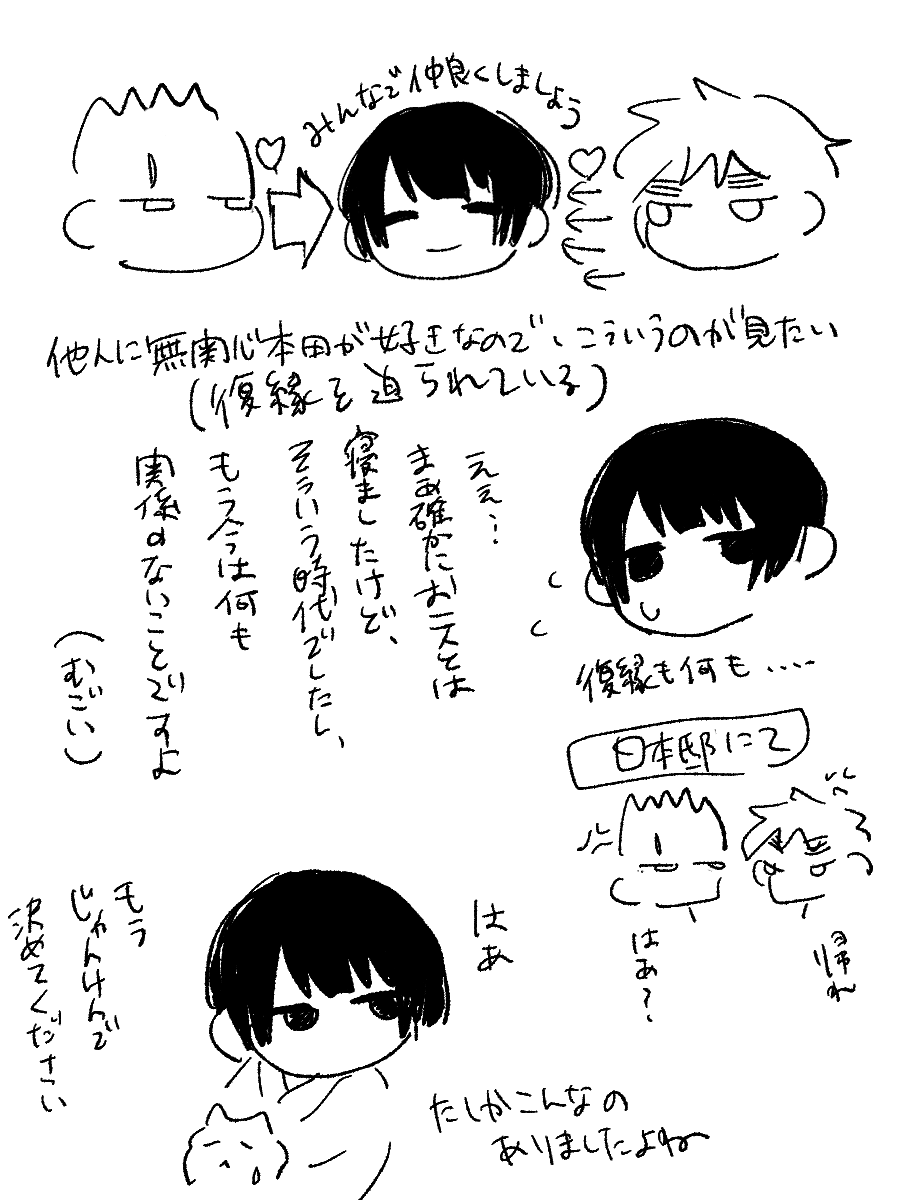 みんなで仲良くしましょう
他人に無関心本田が好きなので、こういうのが見たい
(復縁を迫られている)
ええ…
まあ確かにお二人とは
寝ましたけど、
そういう時代でしたし、
もう今は何も
関係のないことですよ
(むごい)
復縁も何も‥‥
日本邸にて
帰れ
はぁ?
はぁ
もう
じゃんけんで
決めてください
たしかこんなの
ありましたよね